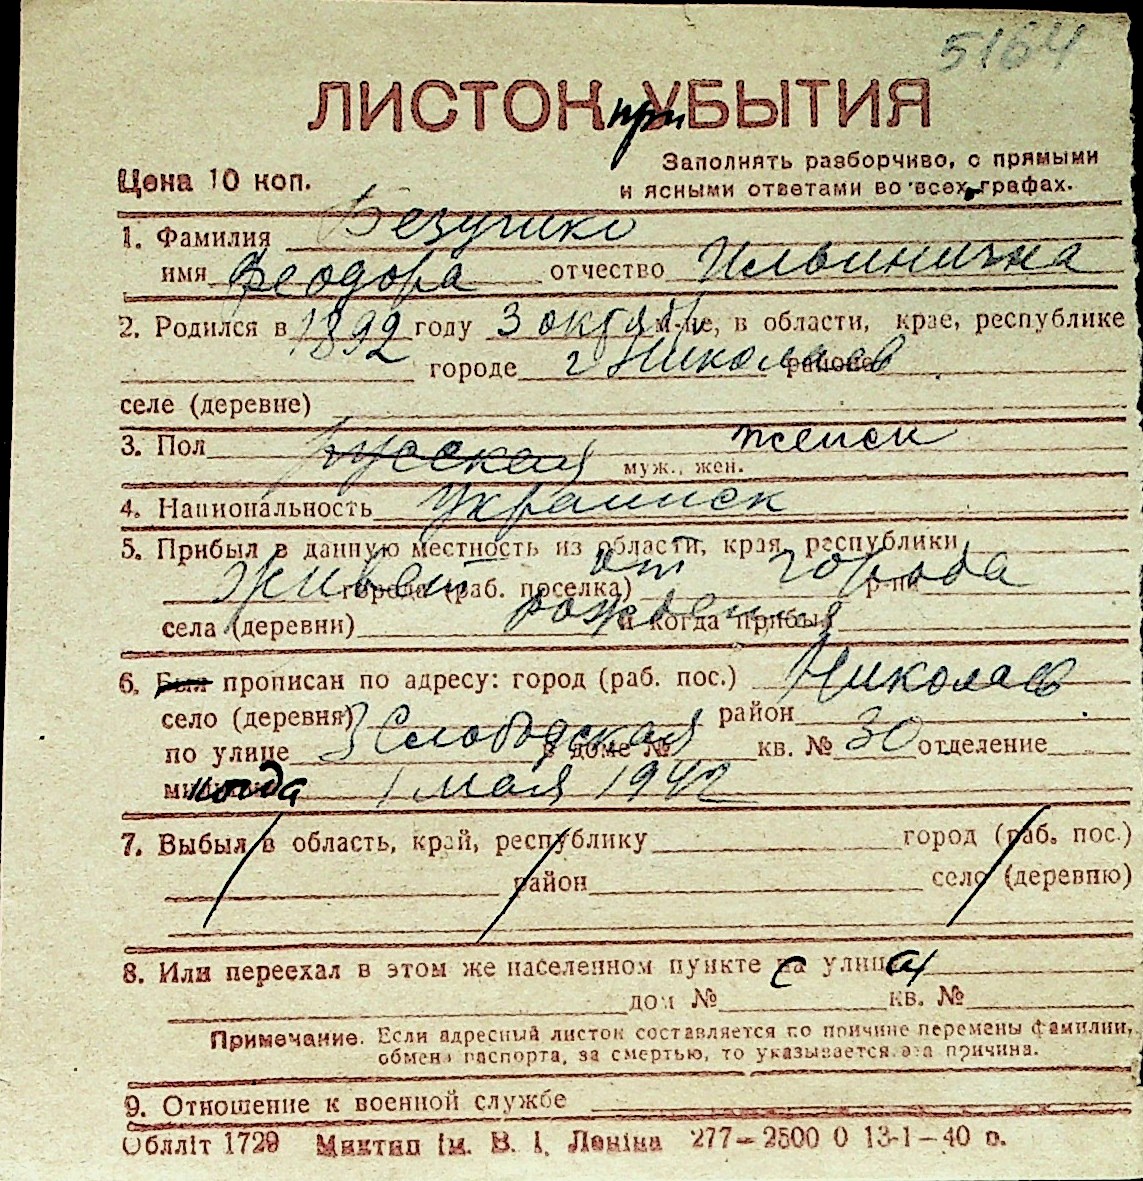 5164
ЛИСТОК при УБЫТИЯ
Заполнять разборчиво, с прямыми
Цена 10 коп.
и ясными ответами во всех графах.
1. Фамилия
имя Феодора отчество Ильинична
2. Родился в 1892 году 3 октяб м-це, в области, крае, республике
городе г Николаев районе
селе (деревне)
3. Пол русская муж., жен. женск
4. Национальность украинск
5. Прибыл в данную местность из области, края, республики
живет от города
города (раб. поселка) р-на
села (деревни) рождения и когда прибыл
6. Был прописан по адресу: город (раб. пос.) Николаев
село (деревня) район
по улице 3 Слободская в доме № кв. № 30 отделение
когда 1 мая 1942
7. Выбыл в область, край, республику город (раб. пос.)
район село (деревню)
8. Или переехал в этом же населенном пункте с улицы
дом № кв. №
Примечание. Если адресный листок составляется по причине перемены фамилии,
обмена паспорта, за смертью, то указывается эта причина.
9. Отношение к военной службе
Облліт 1729 Миктип ім. В. І. Леніна 277–2500 0 13-1–40 р.